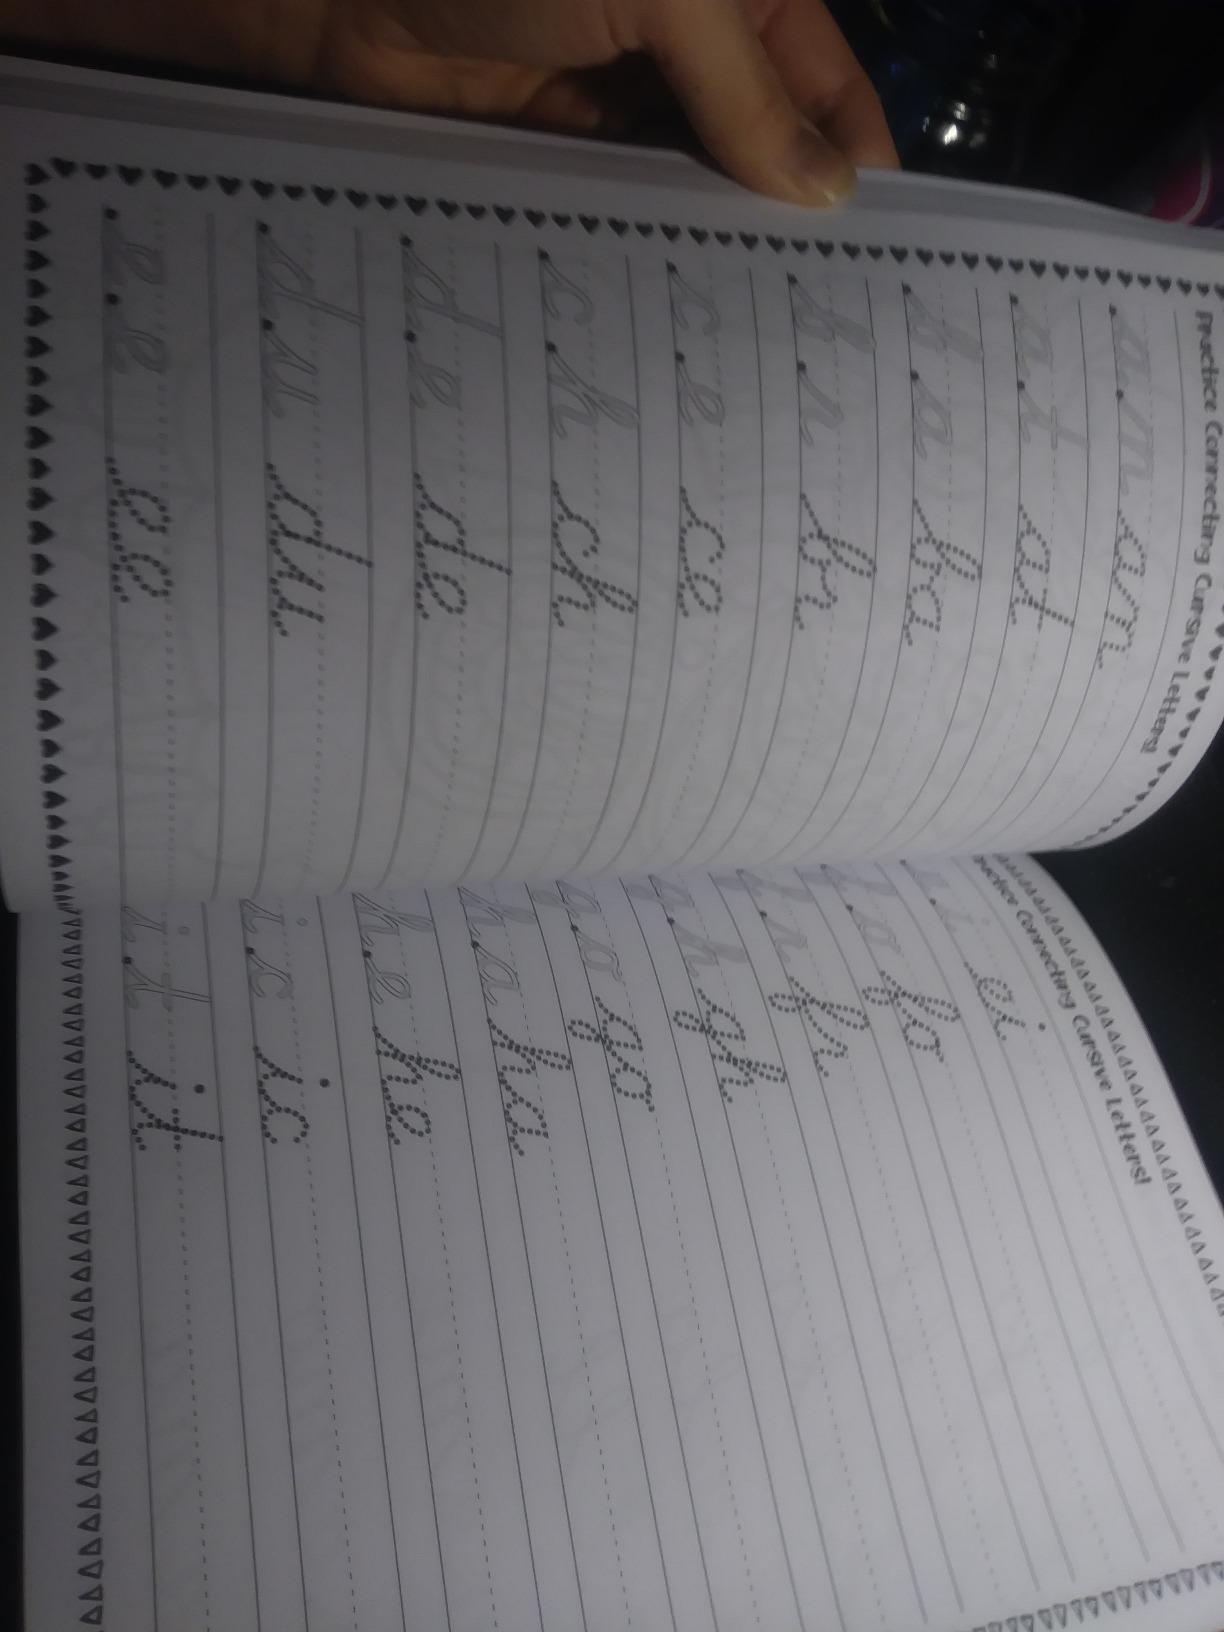 Practice Connecting Cursive Letters!
a m am
a t at
b a ba
b r br
c e ce
c h ch
d e de
d u du
e e ee
ractice Connecting Cursive Letters!
i ei
f o fo
f r fr
g h gh
g o go
h a ha
h e he
i c ic
i t it